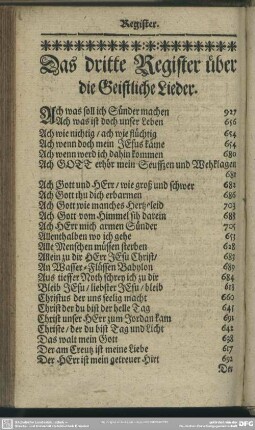 Register.
Das dritte Register über
die Geistliche Lieder.
Ach was soll ich Sünder machen 927
Ach was ist doch unser Leben 656
Ach wie nichtig / ach wie flüchtig 654
Ach wenn doch mein JEsus käme 654
Ach wenn werd ich dahin kommen 680
Ach GOTT erhör mein Seufftzen und Wehklagen
681
Ach Gott und HErr / wie groß und schwer 682
Ach Gott thu dich erbarmen 686
Ach Gott wie manches Hertzeleid 703
Ach Gott vom Himmel sih darein 688
Ach HErr mich armen Sünder 705
Allenthalben wo ich gehe 655
Alle Menschen müssen sterben 618
Allein zu dir HErr JEsu Christ / 683
An Wasser-Flüssen Babylon 689
Aus tieffer Noth schrey ich zu dir 684
Bleib JEsu / liebster JEsu / bleib 613
Christus der uns seelig macht 660
Christ der du bist der helle Tag 641
Christ unser HErr zum Jordan kam 691
Christe / der du bist Tag und Licht 642
Das walt mein Gott 638
Der am Creutz ist meine Liebe 617
Der HErr ist mein getreuer Hirt 692
Der